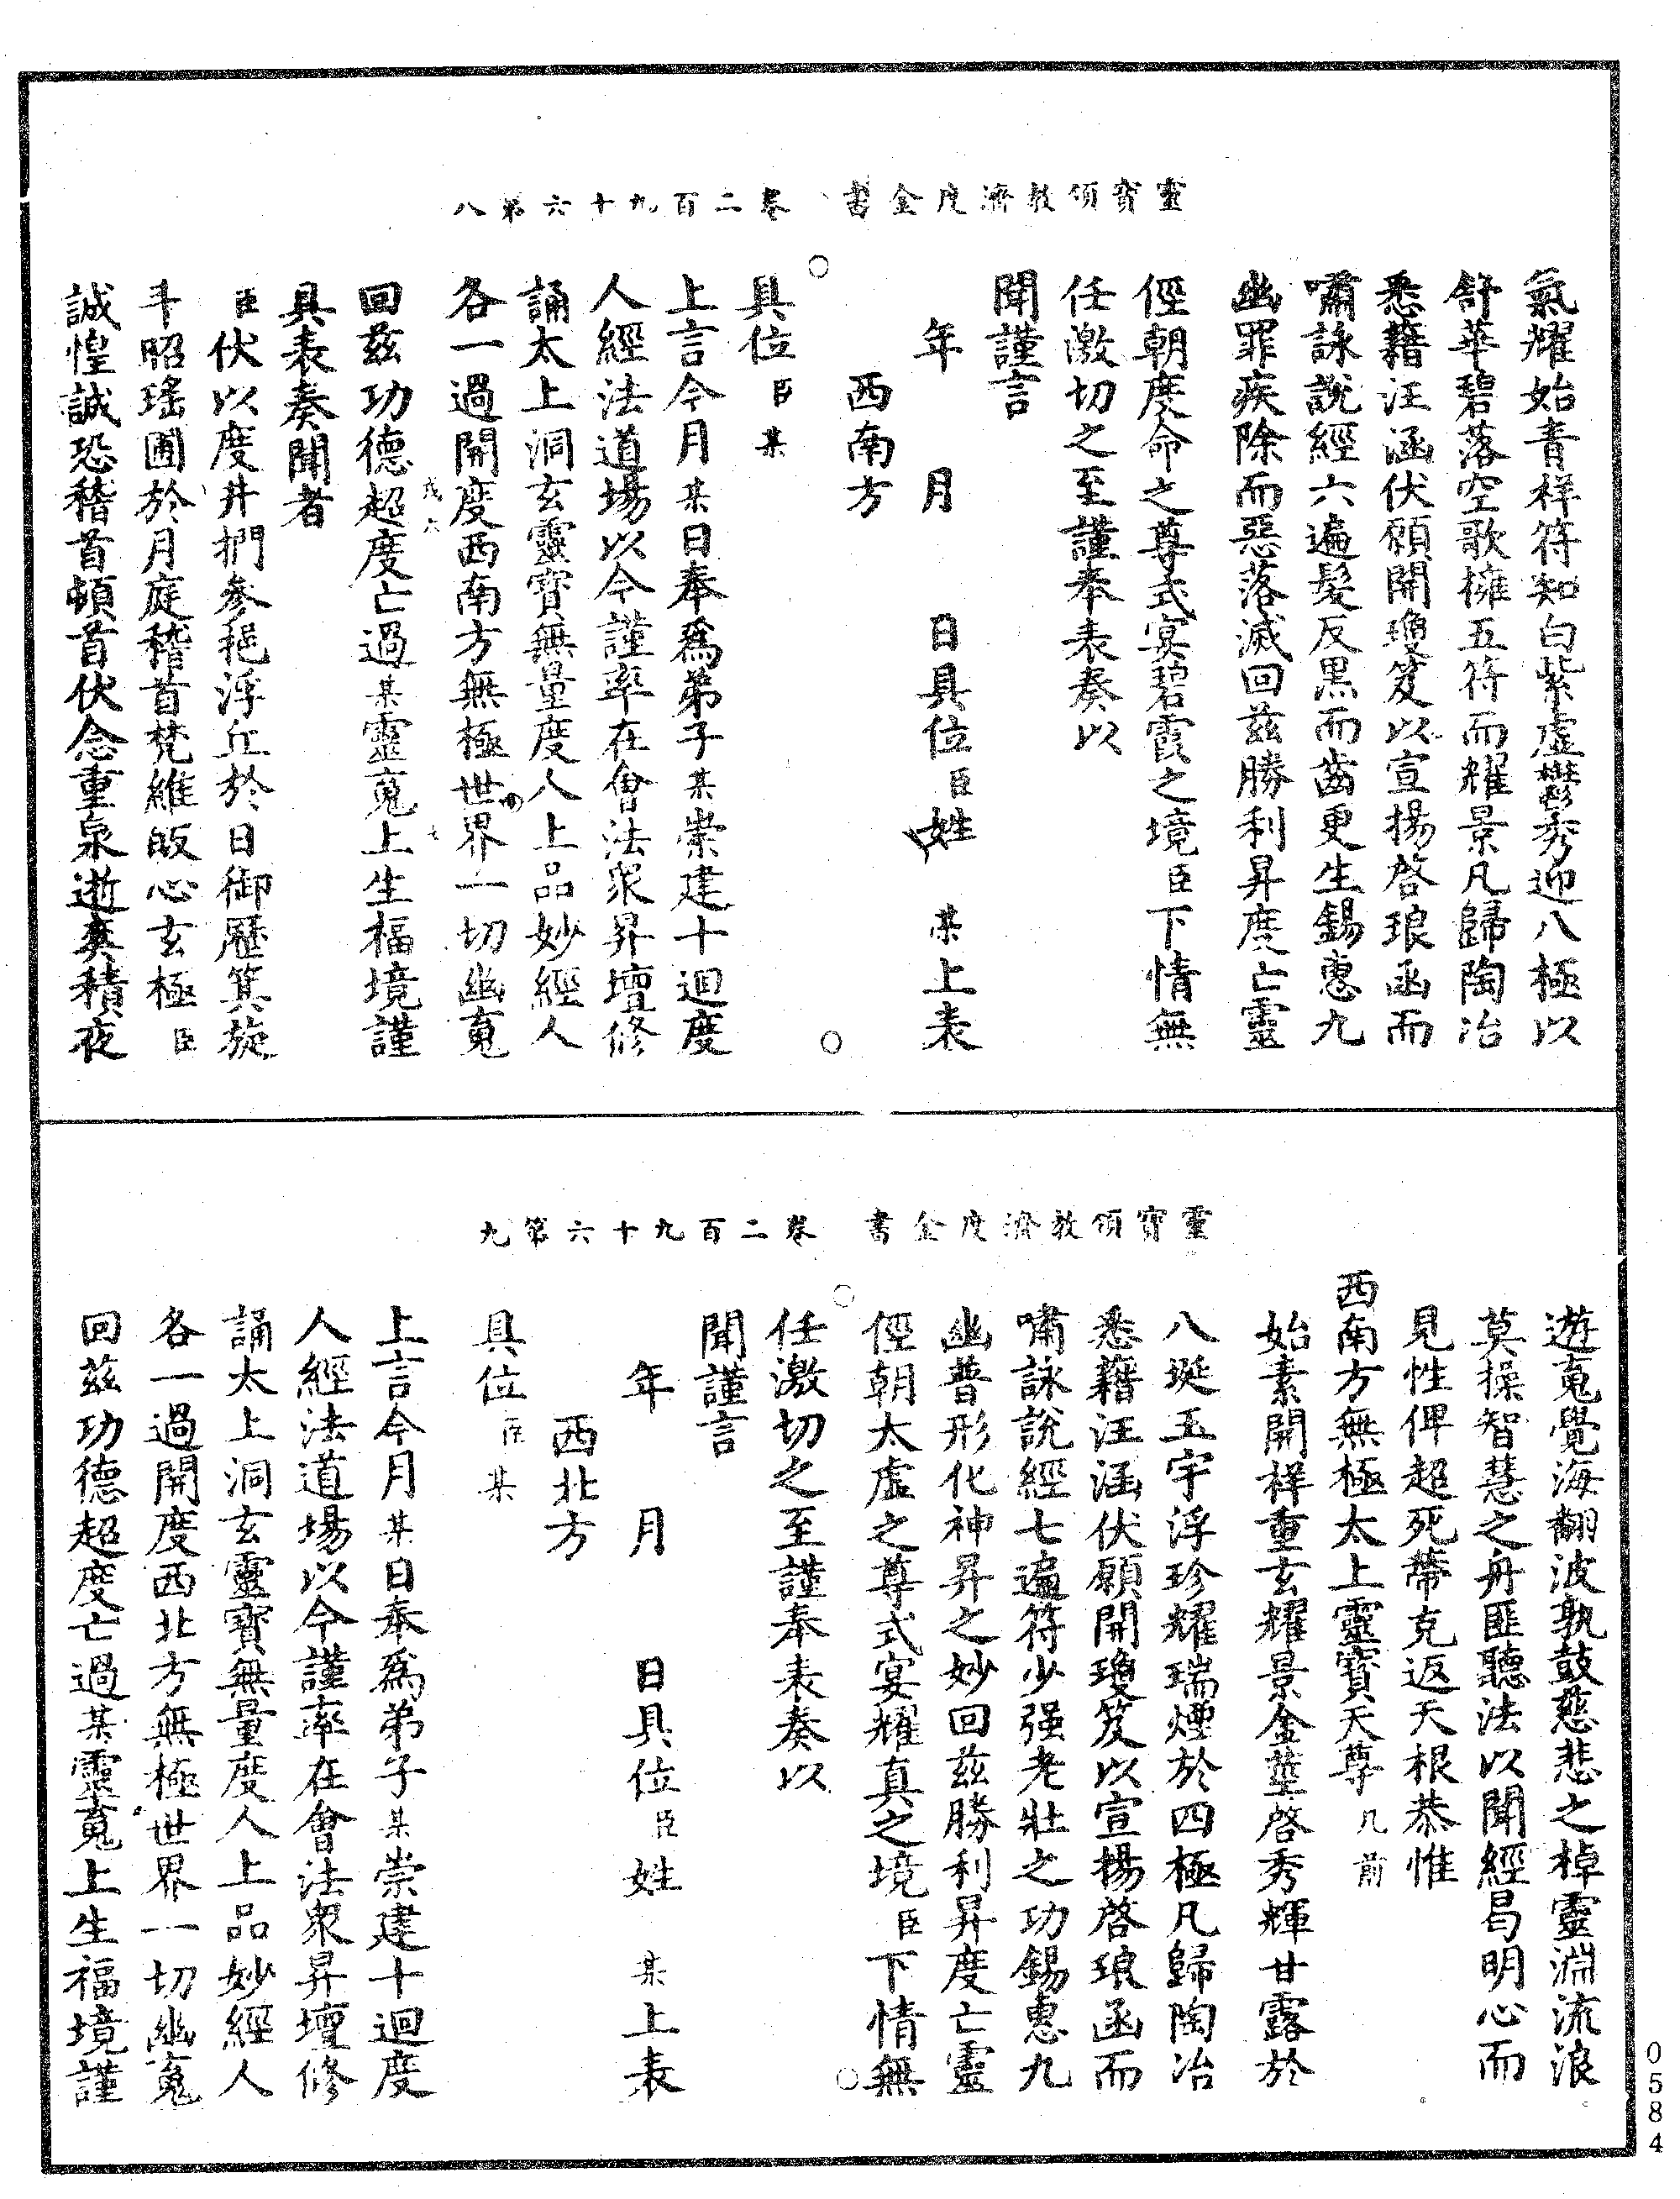 靈寶領教濟度金書　卷二百九十六第八
氣耀始青祥符知白紫虛鬱秀迎八極以
舒華碧落空歌擁五符而耀景凡歸陶冶
悉藉汪涵伏願開瓊笈以宣揚啓琅函而
嘯詠說經六遍髮反黑而齒更生錫惠九
幽罪疾除而惡落滅回茲勝利昇度亡靈
徑朝度命之尊式宴碧霞之境臣下情無
任激切之至謹奉表奏以
聞謹言
年　月　日具位臣姓　某上表
西南方
具位臣某
上言今月某日奉爲弟子某崇建十迴度
人經法道場以今謹率在會法衆昇壇修
誦太上洞玄靈寶無量度人上品妙經人
各一過開度西南方無極世界一切幽䰟
回茲功德超度亡過某靈䰟上生福境謹
具表奏聞者
臣伏以度井捫參挹浮丘於日御歷箕旋
斗昭瑤圃於月庭稽首梵維皈心玄極臣
誠惶誠恐稽首頓首伏念重泉逝爽積夜
靈寶領教濟度金書　卷二百九十六第九
遊䰟覺海翻波孰鼓慈悲之棹靈淵流浪
莫操智慧之舟匪聽法以聞經曷明心而
見性俾超死蔕克返天根恭惟
西南方無極太上靈寶天尊几前
始素開祥重玄耀景金華啓秀輝甘露於
八埏玉宇浮珍耀瑞煙於四極凡歸陶冶
悉藉汪涵伏願開瓊笈以宣揚啓琅函而
嘯詠說經七遍符少强老壯之功錫惠九
幽普形化神昇之妙回茲勝利昇度亡靈
徑朝太虛之尊式宴耀真之境臣下情無
任激切之至謹奉表奏以
聞謹言
年　月　日具位臣姓　某上表
西北方
具位臣某
上言今月某日奉爲弟子某崇建十迴度
人經法道場以今謹率在會法衆昇壇修
誦太上洞玄靈寶無量度人上品妙經人
各一過開度西北方無極世界一切幽䰟
回茲功德超度亡過某靈䰟上生福境謹
0584